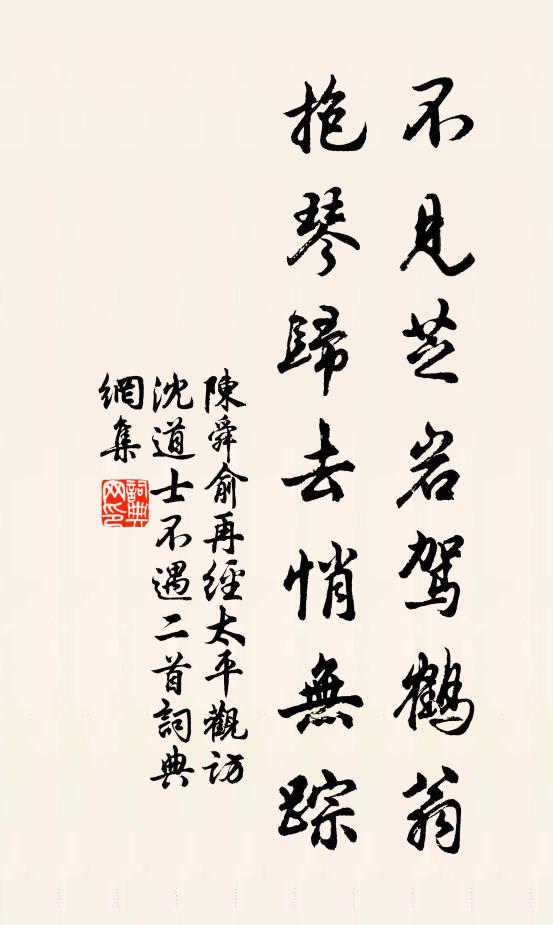 不見芝岩駕鶴翁
抱琴歸去悄無踪
陳舜俞再經太平觀訪
沈道士不遇二首詞典
網集
詞典
网印